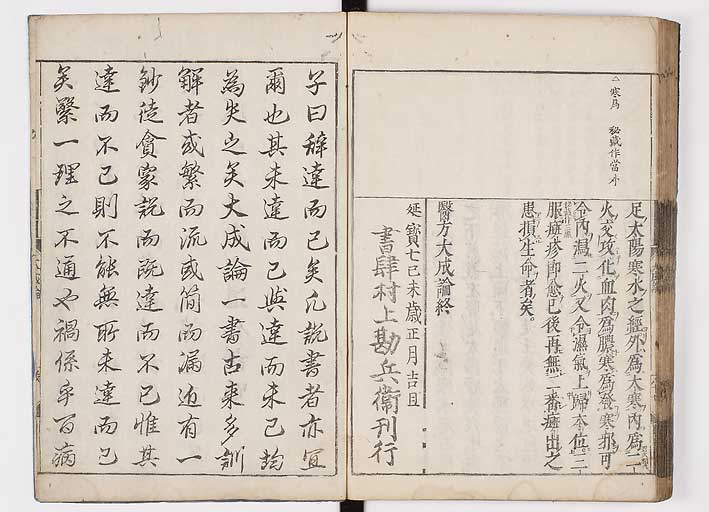 二寒爲 秘藏作當外
足太陽寒水之經外爲大寒內爲二
火交攻化血肉爲膿寒爲發寒邪可
令內濕二火又令濕氣上歸本位三
服癍疹即愈已後再無二番癍出之
患損生命者矣
醫方大成論終
延寶七己未歲正月吉日
書肆村上勘兵衞刊行
子曰辭達而已矣凡說書者亦宜
爾也其未達而已與達而未已均
為失之矣大成論一書古來多訓
解者或繁而流或簡而漏近有一
鈔徒貪家說而既達而不已惟其
達而不已則不能無所未達而已
矣繄一理之不通也禍係乎百病